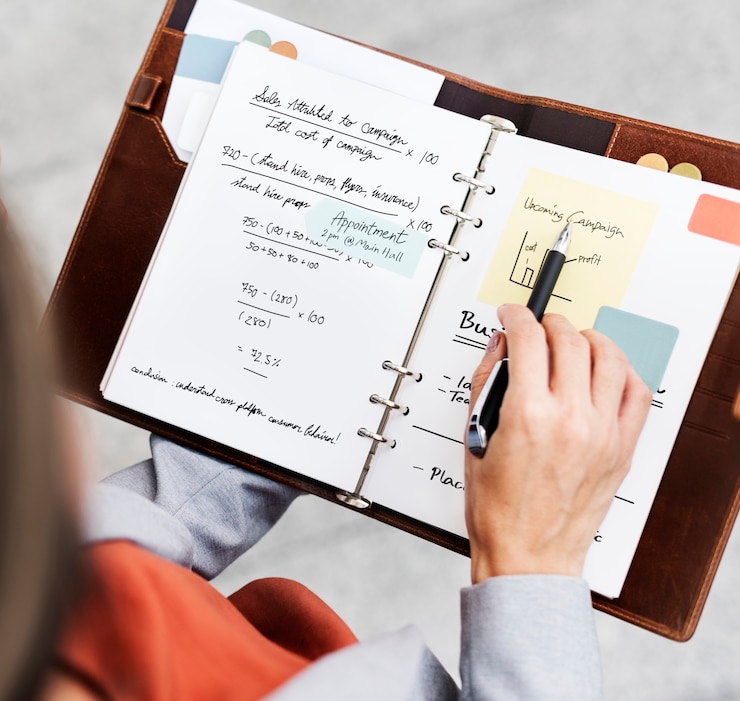 Sales Attributed to Campaign
Total cost of campaign
x 100
720 - (stand hire, props, flyers, insurance)
stand hire props
x 100
Appointment
2 pm @ Main Hall
750 - (100 + 50 +
50 + 50 + 80 + 100
x 100
750 - (280)
(280)
x 100
= 72.5 %
conclusion : understand cross platform consumer behaviors!
Upcoming Campaign
cost
profit
Bus
- 
- Te
- Plac
c